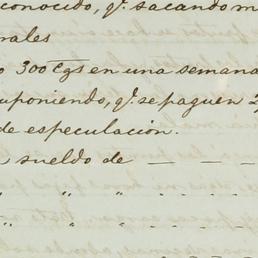 conocido, qe. sacando m
rales
o 300 Cgs en una semana
uponiendo, qe. se paguen 2
de especulacion.
sueldo de — — —
" " " "